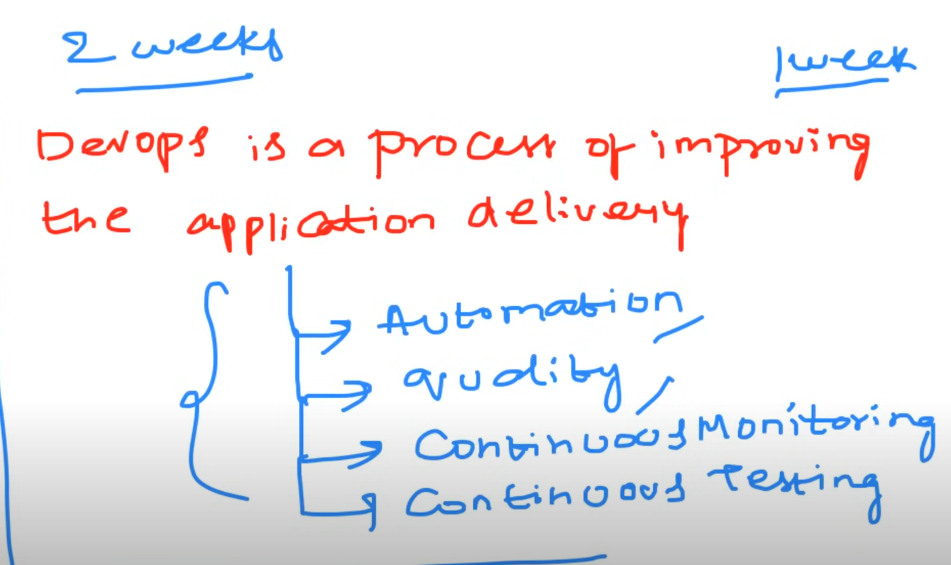 2 weeks 1 week
Devops is a process of improving
the application delivery
Automation
quality
Continuous Monitoring
Continuous Testing